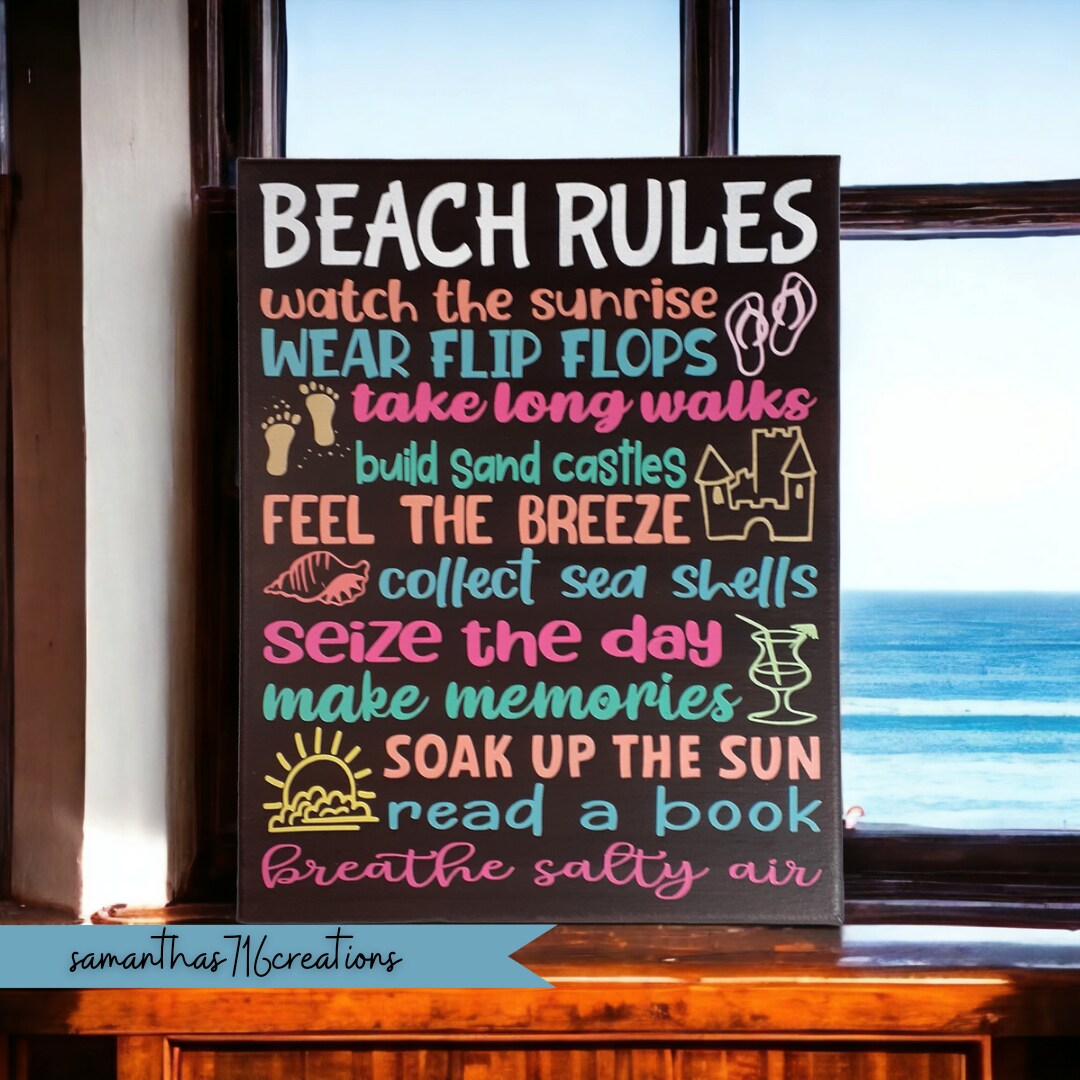 BEACH RULES
watch the sunrise
WEAR FLIP FLOPS
take long walks
build sand castles
FEEL THE BREEZE
collect sea shells
seize the day
make memories
SOAK UP THE SUN
read a book
breathe salty air
samanthas716creations